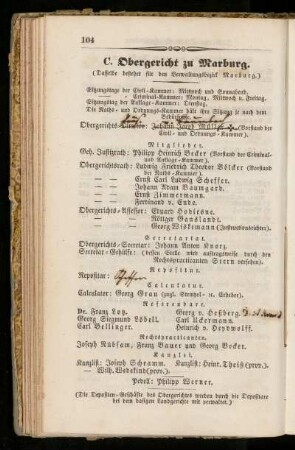 104
C. Obergericht zu Marburg.
(Dasselbe besteht für den Verwaltungsbezirk Marburg.)
Sitzungstage der Civil-Kammer: Mittwoch und Sonnabend.
— — Criminal-Kammer: Montag, Mittwoch u. Freitag.
Sitzungstag der Anklage-Kammer: Dienstag.
Die Raths- und Ordnungs-Kammer hält ihre Sitzung je nach dem
Obergerichts- (Vorstand der
Civil- und Ordnungs-Kammer).
Mitglieder.
Geh. Justizrath: Philipp Heinrich Becker (Vorstand der Criminal-
und Anklage-Kammer).
Obergerichtsrath: Ludwig Friedrich Theodor Völcker (Vorstand der
Raths-Kammer).
— — Ernst Carl Ludwig Scheffer.
— — Johann Adam Baumgard.
— — Ernst Zimmermann.
— — Ferdinand v. Ende.
Obergerichts-Assessor: Eduard
— — Rötger Ganslandt.
— — Georg Wiskemann (Instructionsrichter).
Secretariat.
Obergerichts-Secretar: Johann Anton Knorz.
Secretar-Gehülfe: (dessen Stelle wird auftragsweise durch den
Rechtspracticanten Stern versehen).
Repositur.
Repositar:
Calculatur.
Calculator: Georg Grau (zugl. Stempel- u. Erheber).
Referendare.
Dr. Franz Lotz. Georg v. Heßberg.
Georg Siegmund Löbell. Carl Uckermann.
Carl Bellinger. Heinrich v. Heydwolff.
Rechtspracticanten.
Joseph Rubsam, Franz Bauer und Georg Becker.
Kanzlei.
Kanzlist: Joseph Schramm. Kanzlist: Heinr. Theiß (prov.)
— Wilh. Wedekind (prov.).
Pedell: Philipp Werner.
(Die Depositar-Geschäfte des Obergerichtes werden durch die Depositare
bei dem dasigen Landgerichte mit verwaltet.)